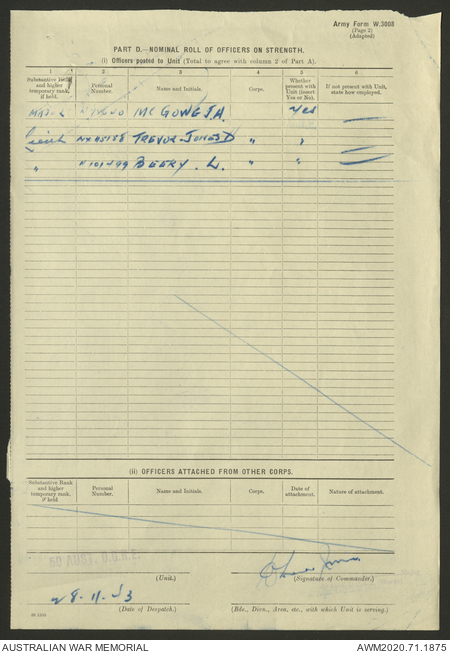 Army Form W.3008
(Page 2)
(Adapted)
PART D.—NOMINAL ROLL OF OFFICERS ON STRENGTH.
(i) Officers posted to Unit (Total to agree with column 2 of Part A).
1 2 3 4 5 6
Substantive Rank and higher temporary rank, if held. Personal Number. Name and Initials. Corps. Whether present with Unit (insert Yes or No). If not present with Unit, state how employed.
Major McGOWE J.A. Yes —
Lieut TREVOR-JONES D " " —
" BEERY . L. " " —
(ii) OFFICERS ATTACHED FROM OTHER CORPS.
Substantive Rank and higher temporary rank, if held Personal Number. Name and Initials. Corps. Date of attachment. Nature of attachment.
60 AUST. D.O.R.E.
(Unit.) (Signature of Commander.)
28.11.43
(Date of Despatch.) (Bde., Divn., Area, etc., with which Unit is serving.)
AUSTRALIAN WAR MEMORIAL AWM2020.71.1875